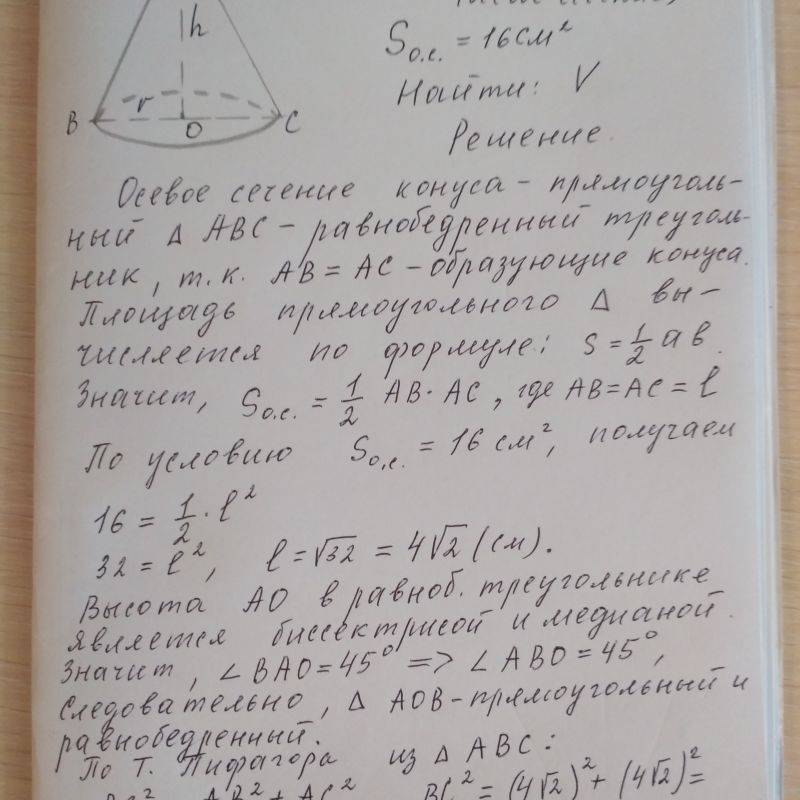 h
S о.с. = 16 см²
Найти: V
r
В О С
Решение.
Осевое сечение конуса – прямоуголь-
ный Δ АВС – равнобедренный треуголь-
ник, т.к. АВ = АС – образующие конуса.
Площадь прямоугольного Δ вы-
числяется по формуле: S = 1/2 ав.
Значит, S о.с. = 1/2 АВ · АС, где АВ = АС = l
По условию S о.с. = 16 см², получаем
16 = 1/2 · l²
32 = l², l = √32 = 4√2 (см).
Высота АО в равноб. треугольнике
является биссектрисой и медианой.
Значит, ∠ ВАО = 45° => ∠ АВО = 45°,
следовательно, Δ АОВ – прямоугольный и
равнобедренный.
По Т. Пифагора из Δ АВС:
ВС² = АВ² + АС² ВС² = (4√2)² + (4√2)² =